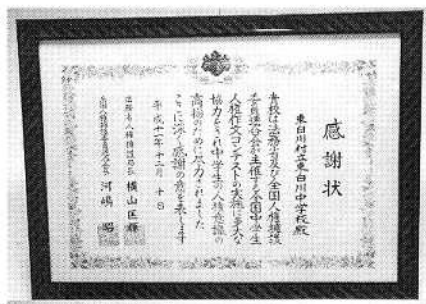 感謝状
東白川村立東白川中学校殿
貴校は法務省及び全国人権擁護
委員連合会が主催する全国中学生
人権作文コンテストの実施に多大な
協力をされ中学生の人権意識の
高揚のために尽力されました
ここに深く感謝の意を表します
平成十一年十二月 十日
法務省人権擁護局長 横山匡輝
全国人権擁護委員連合会長 河嶋 昭